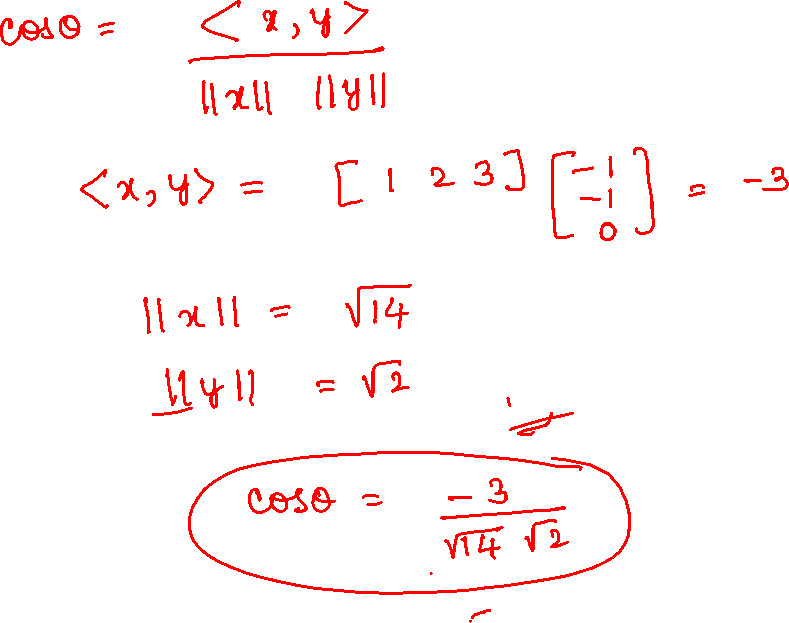 cosθ = <x,y> / ||x|| ||y||
<x,y> = [1 2 3] [-1 -1 0] = -3
||x|| = √14
||y|| = √2
cosθ = -3 / √14 √2